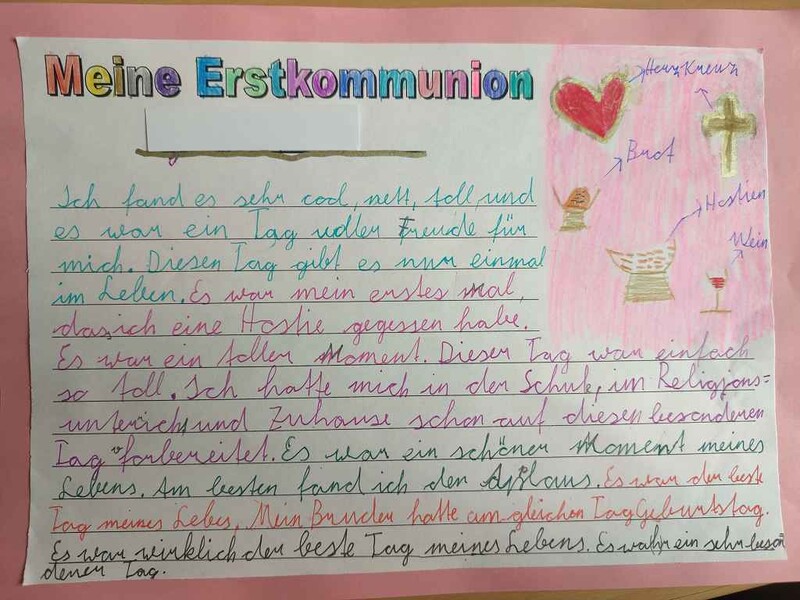 Meine Erstkommunion
Herz Kreuz
Brot
Hostien
Wein
Ich fand es sehr cool, nett, toll und
es war ein Tag voller Freude für
mich. Diesen Tag gibt es nur einmal
im Leben. Es war mein erstes mal,
das ich eine Hostie gegessen habe.
Es war ein toller Moment. Dieser Tag war einfach
so toll. Ich hatte mich in der Schule, im Religions=
unterich, und Zuhause schon auf diesen besonderen
Tag forbereitet. Es war ein schöner Moment meines
Lebens. Am besten fand ich den Aplaus. Es war der beste
Tag meines Lebes. Mein Bruder hatte am gleichen Tag Geburtstag.
Es war wirklich der beste Tag meines Lebens. Es wahr ein sehr beson
derer Tag.